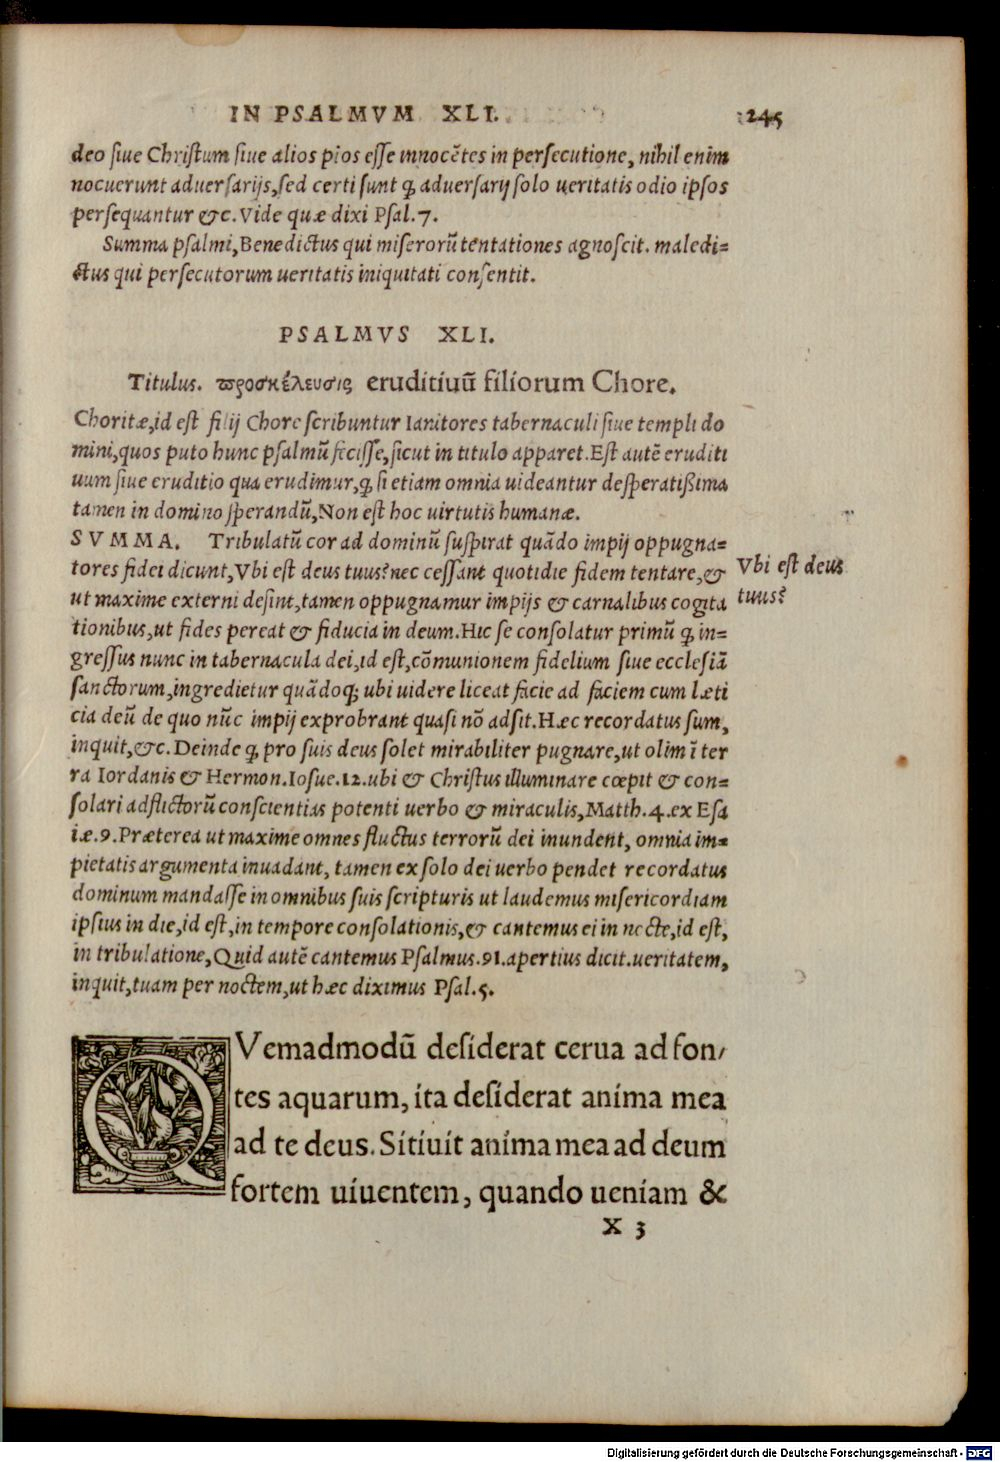 IN PSALMVM XLI. 245
deo siue Christum siue alios pios esse innocētes in persecutione, nihil enim
nocuerunt aduersarijs, sed certi sunt ꝙ aduersarij solo ueritatis odio ipsos
persequantur &c. Vide quæ dixi Psal. 7.
Summa psalmi, Benedictus qui miserorū tentationes agnoscit. maledi=
ctus qui persecutorum ueritatis iniquitati consentit.
PSALMVS XLI.
Titulus. προσκέλευσις eruditiuū filiorum Chore.
Choritæ, id est filij Chore scribuntur Ianitores tabernaculi siue templi do
mini, quos puto hunc psalmū fecisse, sicut in titulo apparet. Est autē eruditi
uum siue eruditio qua erudimur, ꝙ si etiam omnia uideantur desperatißima
tamen in domino sperandū, Non est hoc uirtutis humanæ.
SVMMA. Tribulatū cor ad dominū suspirat quādo impij oppugna=
tores fidei dicunt, Vbi est deus tuus? nec cessant quotidie fidem tentare, &
Vbi est deus
tuus?
ut maxime externi desint, tamen oppugnamur impijs & carnalibus cogita
tionibus, ut fides pereat & fiducia in deum. Hic se consolatur primū ꝙ in=
gressus nunc in tabernacula dei, id est, cōmunionem fidelium siue ecclesiā
sanctorum, ingredietur quādoꝙ; ubi uidere liceat facie ad faciem cum læti
cia deū de quo nūc impij exprobrant quasi nō adsit. Hæc recordatus sum,
inquit, &c. Deinde ꝙ pro suis deus solet mirabiliter pugnare, ut olim ī ter
ra Iordanis & Hermon. Iosue. 12. ubi & Christus illuminare cœpit & con=
solari adflictorū conscientias potenti uerbo & miraculis, Matth. 4. ex Esa
iæ. 9. Præterea ut maxime omnes fluctus terrorū dei inundent, omnia im=
pietatis argumenta inuadant, tamen ex solo dei uerbo pendet recordatus
dominum mandasse in omnibus suis scripturis ut laudemus misericordiam
ipsius in die, id est, in tempore consolationis, & cantemus ei in nocte, id est,
in tribulatione, Quid autē cantemus Psalmus. 91. apertius dicit. ueritatem,
inquit, tuam per noctem, ut hæc diximus Psal. 5.
QVemadmodū desiderat cerua ad fon/
tes aquarum, ita desiderat anima mea
ad te deus. Sitiuit anima mea ad deum
fortem uiuentem, quando ueniam &
X 3
Digitalisierung gefördert durch die Deutsche Forschungsgemeinschaft - DFG